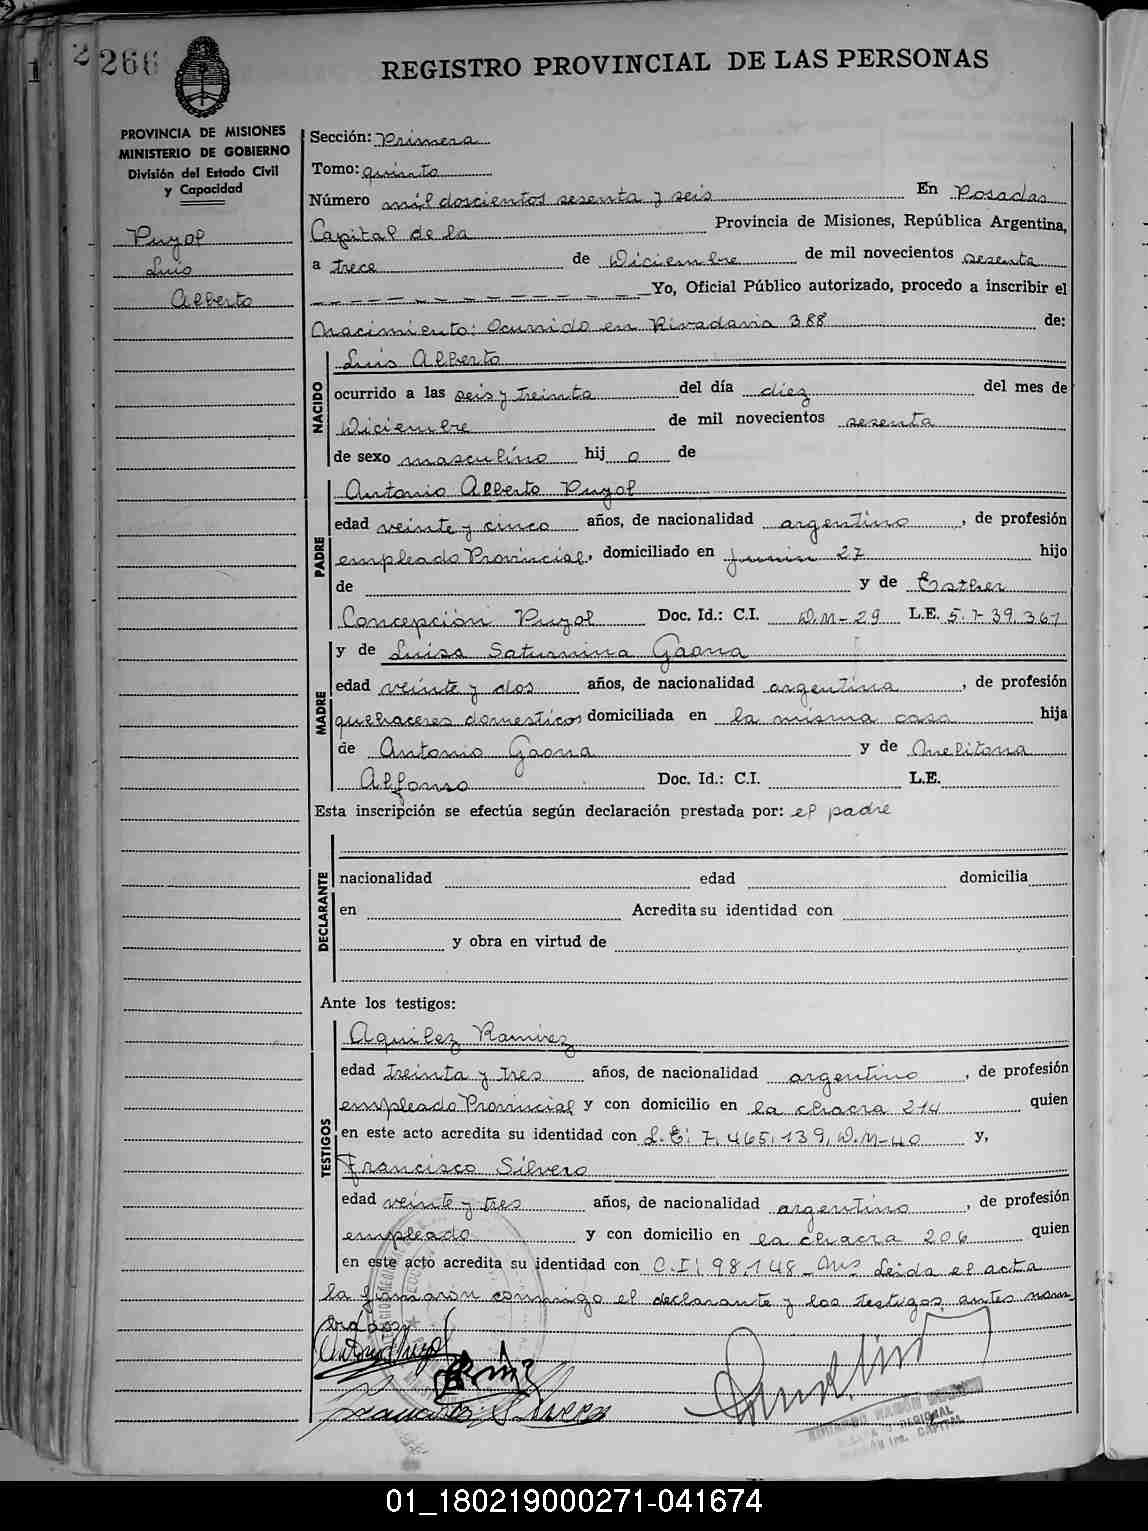 266
REGISTRO PROVINCIAL DE LAS PERSONAS
PROVINCIA DE MISIONES
MINISTERIO DE GOBIERNO
División del Estado Civil
y Capacidad
Puyol
Luis
Alberto
Sección: Primera
Tomo: quinto
Número mil doscientos sesenta y seis En Posadas
Capital de la Provincia de Misiones, República Argentina,
a trece de Diciembre de mil novecientos sesenta
Yo, Oficial Público autorizado, procedo a inscribir el
Nacimiento: Ocurrido en Rivadavia 388 de:
NACIDO
Luis Alberto
ocurrido a las seis y treinta del día diez del mes de
Diciembre de mil novecientos sesenta
de sexo masculino hij o de
PADRE
Antonio Alberto Puyol
edad veinte y cinco años, de nacionalidad argentino, de profesión
empleado Provincial, domiciliado en Junin 27 hijo
de y de Esther
Concepción Puyol Doc. Id.: C.I. D.M-29 L.E. 5.7-39.367
MADRE
y de Luisa Saturnina Gaona
edad veinte y dos años, de nacionalidad argentina, de profesión
quehaceres domesticos domiciliada en la misma casa hija
de Antonio Gaona y de Melitona
Alfonso Doc. Id.: C.I. L.E.
Esta inscripción se efectúa según declaración prestada por: el padre
DECLARANTE
nacionalidad edad domicilia
en Acredita su identidad con
y obra en virtud de
Ante los testigos:
TESTIGOS
Aquilez Ramirez
edad treinta y tres años, de nacionalidad argentino, de profesión
empleado Provincial y con domicilio en la chacra 214 quien
en este acto acredita su identidad con L.E: 7.465.139, D.M-40 y,
Francisco Silvero
edad veinte y tres años, de nacionalidad argentino, de profesión
empleado y con domicilio en la chacra 206 quien
en este acto acredita su identidad con C.I: 98.148- Ms Leida el acta
la firmaron conmigo el declarante y los testigos antes nom-
brados
Francisco Silvero
CAPITAL
01_180219000271-041674